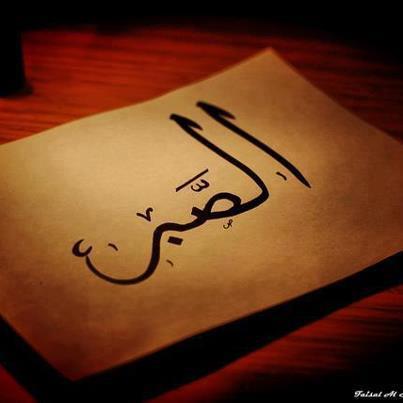 الصبر
Faisal Al